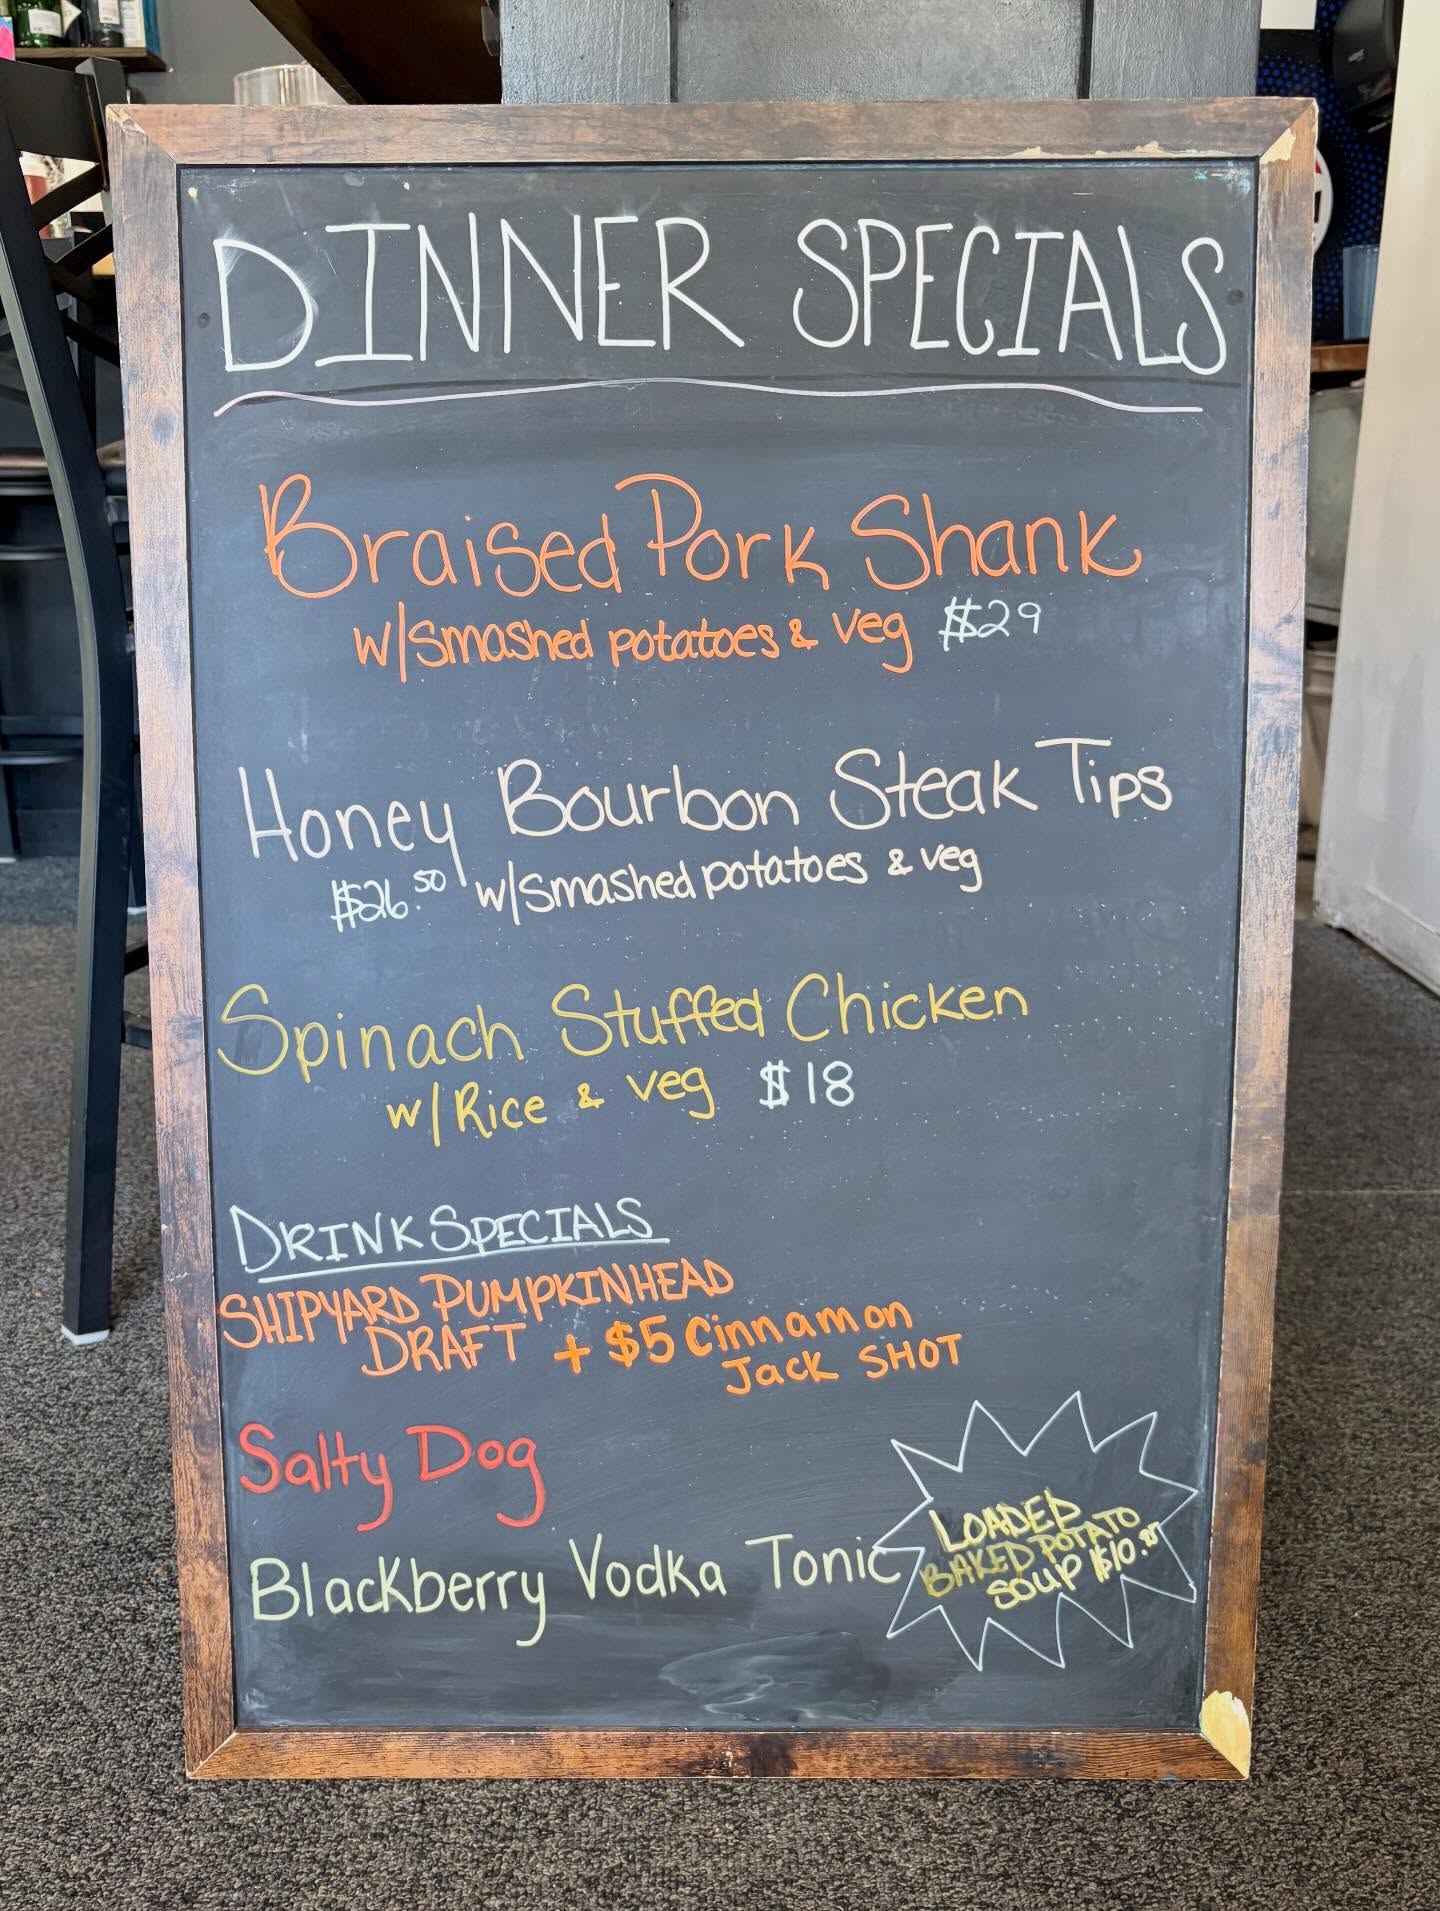 DINNER SPECIALS
Braised Pork Shank
w/Smashed potatoes & veg $29
Honey Bourbon Steak Tips
$26.50 w/Smashed potatoes & veg
Spinach Stuffed Chicken
w/Rice & veg $18
DRINK SPECIALS
SHIPYARD PUMPKINHEAD
DRAFT + $5 Cinnamon
Jack SHOT
Salty Dog
Blackberry Vodka Tonic
LOADED
BAKED POTATO
SOUP